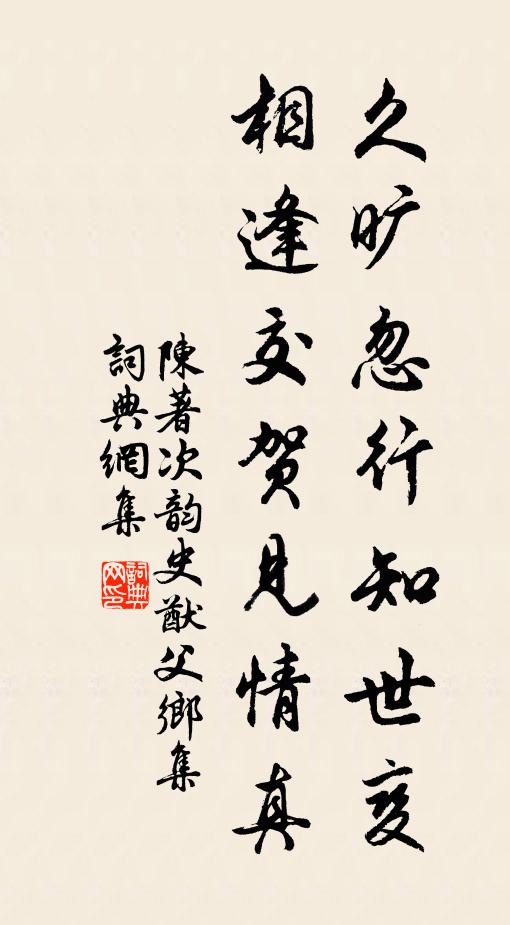 久旷忽行知世变
相逢交贺见情真
陳著次韵史猷父鄉集
詞典網集
詞典网印